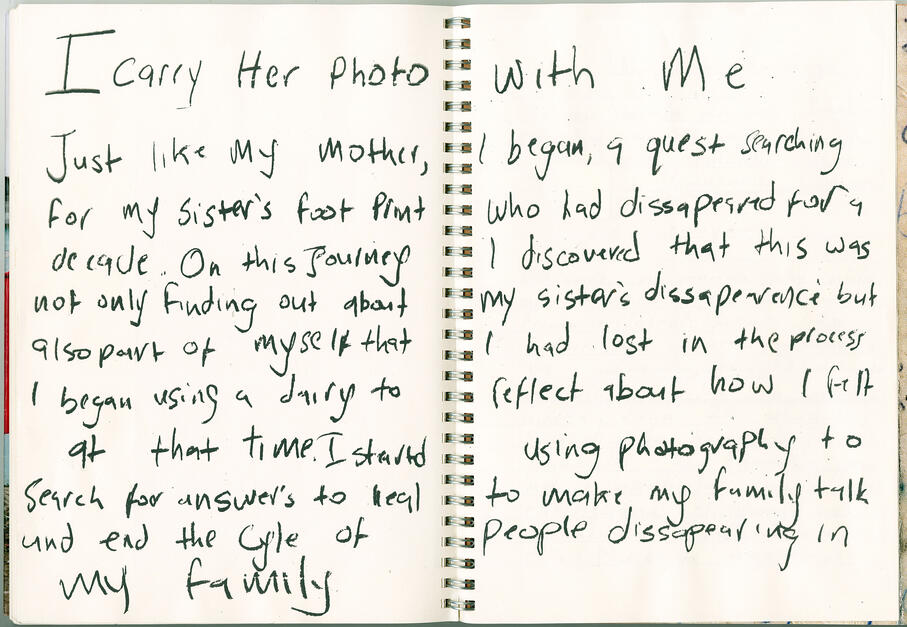 I carry Her Photo with Me
Just like My mother, I began, a quest searching
for my sister's foot Print who had dissapeared for a
decade. On this Journey I discovered that this was
not only finding out about my sister's dissapearence but
also part of myself that I had lost in the process
I began using a dairy to reflect about how I felt
at that time. I started using photography to
search for answer's to heal to make my family talk
und end the cyle of people dissapearing in
my family